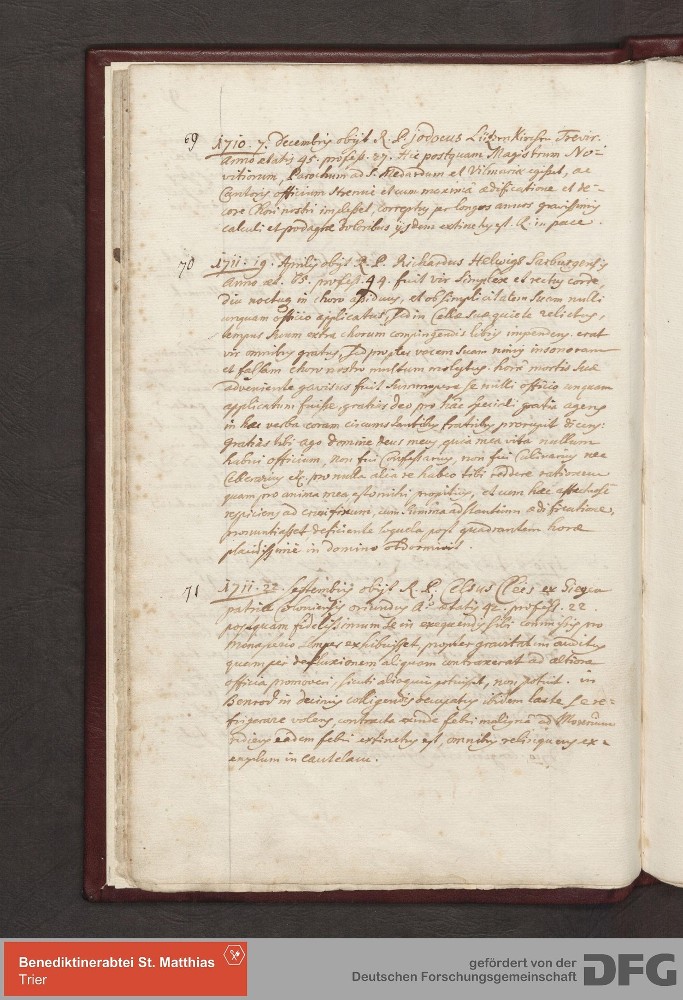 69 1710. 7. Decembris obijt R. P. Jodocus Lützenkirchen Trevir.
anno ætatis 45. profess. 27. Hic postquam Magistrum No-
vitiorum, Parochum ad S. Medardum et Vilmariæ egisset, ac
Cantoris officium strenue et cum maxima ædificatione et de-
core Chori nostri implesset, correptus per longos annos gravissimis
calculi et podagræ doloribus ijsdem extinctus est. R. in pace.
70 1711. 19. Aprilis obijt R. P. Richardus Helwigs Sarburgensis
anno æt. 65. profess. 44. fuit vir simplex et rectus corde,
diu noctuq in choro assiduus, et ob simplicitatem suam nulli
unquam officio applicatus, sed in Cella sua quiete relictus,
tempus suum extra chorum compingendis libris impendens. erat
vir omnibus gratus, sed propter vocem suam nimis insonoram
et falsam choro nostro multum molestus. hora mortis suæ
adveniente gavisus fuit summopere se nulli officio unquam
applicatum fuisse, gratias deo pro hac speciali gratia agens
in hæc verba coram circumstantibus fratribus prorupit dicens:
gratias tibi ago domine Deus meus, quia mea vita nullum
habui officium, non fui Confessarius, non fui Culinarius nec
Cellerarius &c. pro nulla alia re habeo tibi reddere rationem
quam pro anima mea esto mihi propitius, et cum hæc affectuose
respiciens ad crucifixum, cum summa adstantium ædificatione,
pronuntiasset deficiente loquela post quadrantem horæ
placidissime in domino obdormivit.
71 1711. 22. Septembris obijt R. P. Celsus Clees ex
patria Coloniensis oriundus Aº ætatis 42. profess. 22.
postquam fidelissimum se in exequendis sibi commissis pro
Monasterio semper exhibuisset, propter gravitatem auditus
quam per defluxionem aliquam contraxerat ad altiora
officia promoveri, sicuti alioquin potuisset, non potuit. in
Benrod in decimis colligendis occupatus ibidem lacte se re-
frigerare volens, contracta exinde febri maligna ad Monrium
rediens eadem febri extinctus est, omnibus relinquens ex-
emplum in cautelam.
Benediktinerabtei St. Matthias
Trier
gefördert von der
Deutschen Forschungsgemeinschaft
DFG